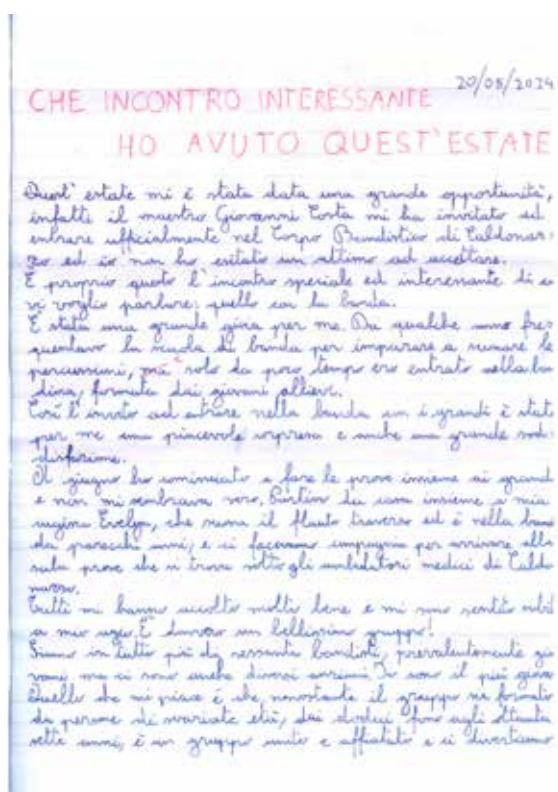 20/08/2014
CHE INCONTRO INTERESSANTE
HO AVUTO QUEST'ESTATE
Quest'estate mi è stata data una grande opportunità,
infatti il maestro Giovanni Costa mi ha invitato ad
entrare ufficialmente nel Corpo Bandistico di Caldonaz-
zo ed io non ho esitato un attimo ad accettare.
È proprio questo l'incontro speciale ed interessante di
vi voglio parlare: quello con la banda.
È stata una grande gioia per me. Da qualche anno fre
quentavo la scuola di banda per imparare a suonare le
percussioni, ma solo da poco tempo ero entrato nella ban
dina, formata dai giovani allievi.
Così l'invito ad entrare nella banda con i grandi è stat
per me una piacevole sorpresa e anche una grande sod-
disfazione.
A giugno ho cominciato a fare le prove insieme ai grand
e non mi sembrava vero. Partivo da casa insieme a mia
cugina Evelyn, che suona il flauto traverso ed è nella ban
da parecchi anni, e ci facevamo compagnia per arrivare alla
sala prove che si trova sotto gli ambulatori medici di Caldo
nazzo.
Tutti mi hanno accolto molto bene e mi sono sentito subit
a mio agio. È davvero un bellissimo gruppo!
Siamo in tutto più di sessanta bandisti, prevalentemente gio
vani, ma ci sono anche diversi anziani. Io sono il più giova
Quello che mi piace è che, nonostante il gruppo sia formato
da persone di svariate età, dai dodici fino agli ottanta
sette anni, è un gruppo unito e affiatato e ci divertiamo